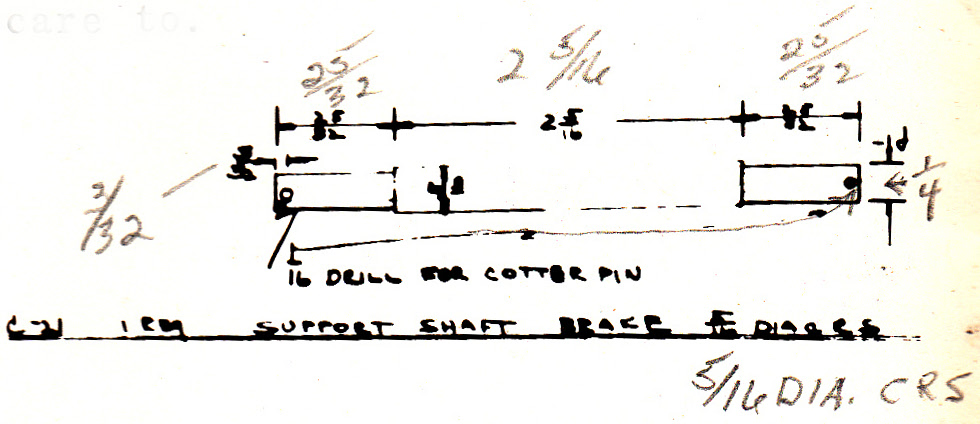 care to.
25/32 2 5/16 25/32
2 5/16
3/32
1/4
1/16 DRILL FOR COTTER PIN
C-21 1 REQ SUPPORT SHAFT BRAKE 5/16 DIA CRS
5/16 DIA. CRS